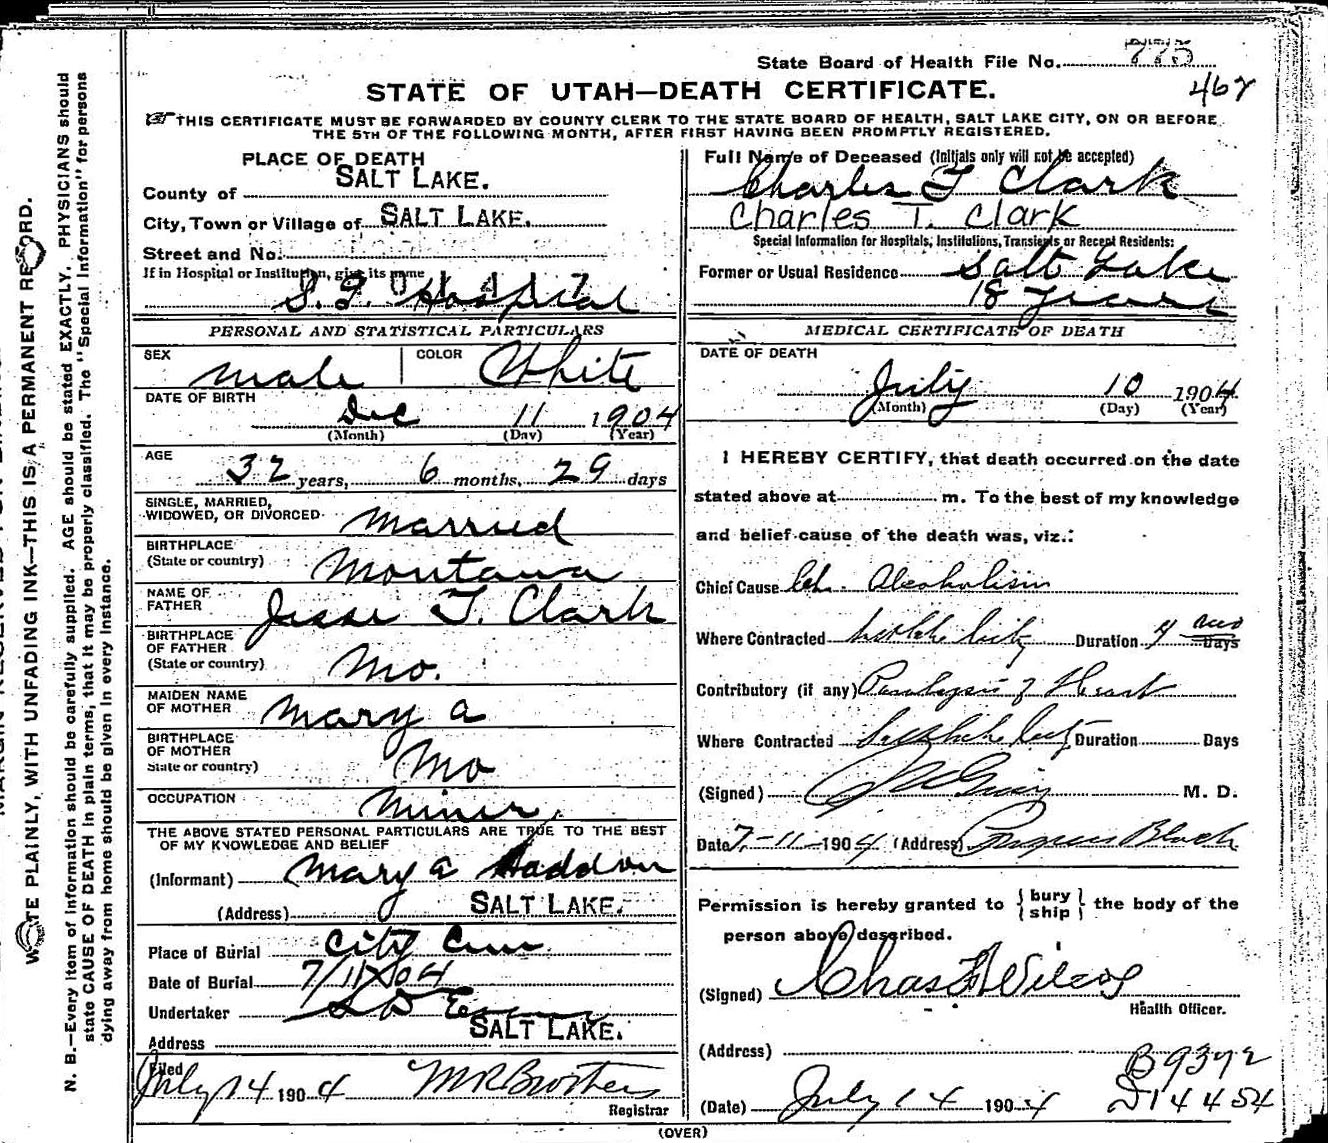 State Board of Health File No. 775
462
STATE OF UTAH—DEATH CERTIFICATE.
THIS CERTIFICATE MUST BE FORWARDED BY COUNTY CLERK TO THE STATE BOARD OF HEALTH, SALT LAKE CITY, ON OR BEFORE
THE 5TH OF THE FOLLOWING MONTH, AFTER FIRST HAVING BEEN PROMPTLY REGISTERED.
WRITE PLAINLY, WITH UNFADING INK—THIS IS A PERMANENT RECORD.
N. B.—Every item of information should be carefully supplied. AGE should be stated EXACTLY. PHYSICIANS should
state CAUSE OF DEATH in plain terms, that it may be properly classified. The "Special Information" for persons
dying away from home should be given in every instance.
PLACE OF DEATH
County of SALT LAKE.
City, Town or Village of SALT LAKE.
Street and No.
If in Hospital or Institution, give its name
Hospital
PERSONAL AND STATISTICAL PARTICULARS
SEX male COLOR White
DATE OF BIRTH
Dec 11 1904
(Month) (Day) (Year)
AGE
32 years, 6 months, 29 days
SINGLE, MARRIED,
WIDOWED, OR DIVORCED Married
BIRTHPLACE
(State or country) Montana
NAME OF
FATHER Jesse T. Clark
BIRTHPLACE
OF FATHER
(State or country) Mo.
MAIDEN NAME
OF MOTHER Mary a
BIRTHPLACE
OF MOTHER
State or country) Mo
OCCUPATION Miner
THE ABOVE STATED PERSONAL PARTICULARS ARE TRUE TO THE BEST
OF MY KNOWLEDGE AND BELIEF
(Informant) Mary a Haddon
(Address) SALT LAKE.
Place of Burial City Cem
Date of Burial 7/11/04
Undertaker S D Evans
Address SALT LAKE.
Filed
July 14 1904 M R Brothers
Registrar
Full Name of Deceased (Initials only will not be accepted)
Charles T Clark
Charles T. Clark
Special Information for Hospitals, Institutions, Transients or Recent Residents:
Former or Usual Residence Salt Lake
18 years
MEDICAL CERTIFICATE OF DEATH
DATE OF DEATH
July 10 1904
(Month) (Day) (Year)
I HEREBY CERTIFY, that death occurred on the date
stated above at m. To the best of my knowledge
and belief cause of the death was, viz.:
Chief Cause Ch. Alcoholism
Where Contracted Duration Days
Contributory (if any) Paralysis of Heart
Where Contracted Duration Days
(Signed) M. D.
Date 7-11-1904 (Address)
Permission is hereby granted to {bury ship} the body of the
person above described.
(Signed) Chas F Wilcox
Health Officer.
(Address)
B9372
(Date) July 14 1904
S14454
(OVER)